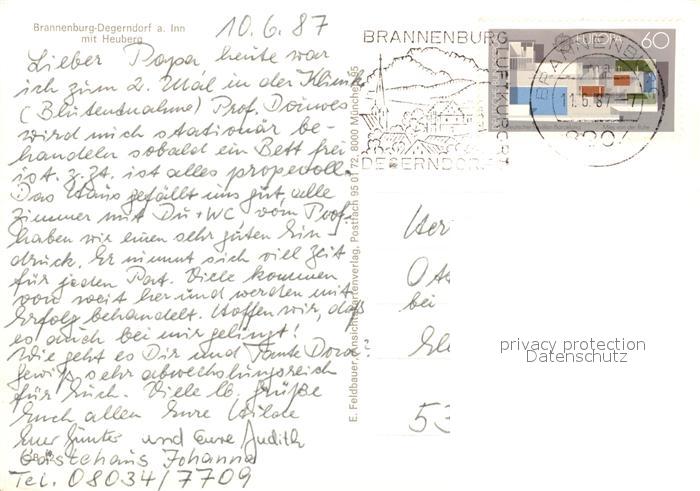 Brannenburg-Degerndorf a. Inn
mit Heuberg
10.6.87
Lieber Papa heute war
ich zum 2. Mal in der Klinik
(Blutentnahme) Prof. Domes
wird mich stationär be-
handeln sobald ein Bett frei
ist. z.Zt. ist alles propevoll.
Das Haus gefällt uns gut, alle
Zimmer mit Du + WC vom Prof.
haben wir einen sehr guten Ein
druck. Er nimmt sich viel Zeit
für jeden Pat. Viele kommen
von weit her und werden mit
Erfolg behandelt. Hoffen wir, daß
es auch bei mir gelingt!
Wie geht es Dir und Tante Dora?
Gewiß sehr abwechslungsreich
für Euch. Viele lb. Grüße
Euch allen Eure Hilde
Euer Günter und Eure Judith
Gästehaus Johanna
Tel. 08034/7709
E. Feldbauer, Ansichtskartenverlag, Postfach 95 01 72, 8000 München 95
BRANNENBURG
LUFTKURORT
DEGERNDORF
EUROPA
60
BRANNENBURG
11.6.87
8204
Her
Os
bei
Ele
53
privacy protection
Datenschutz